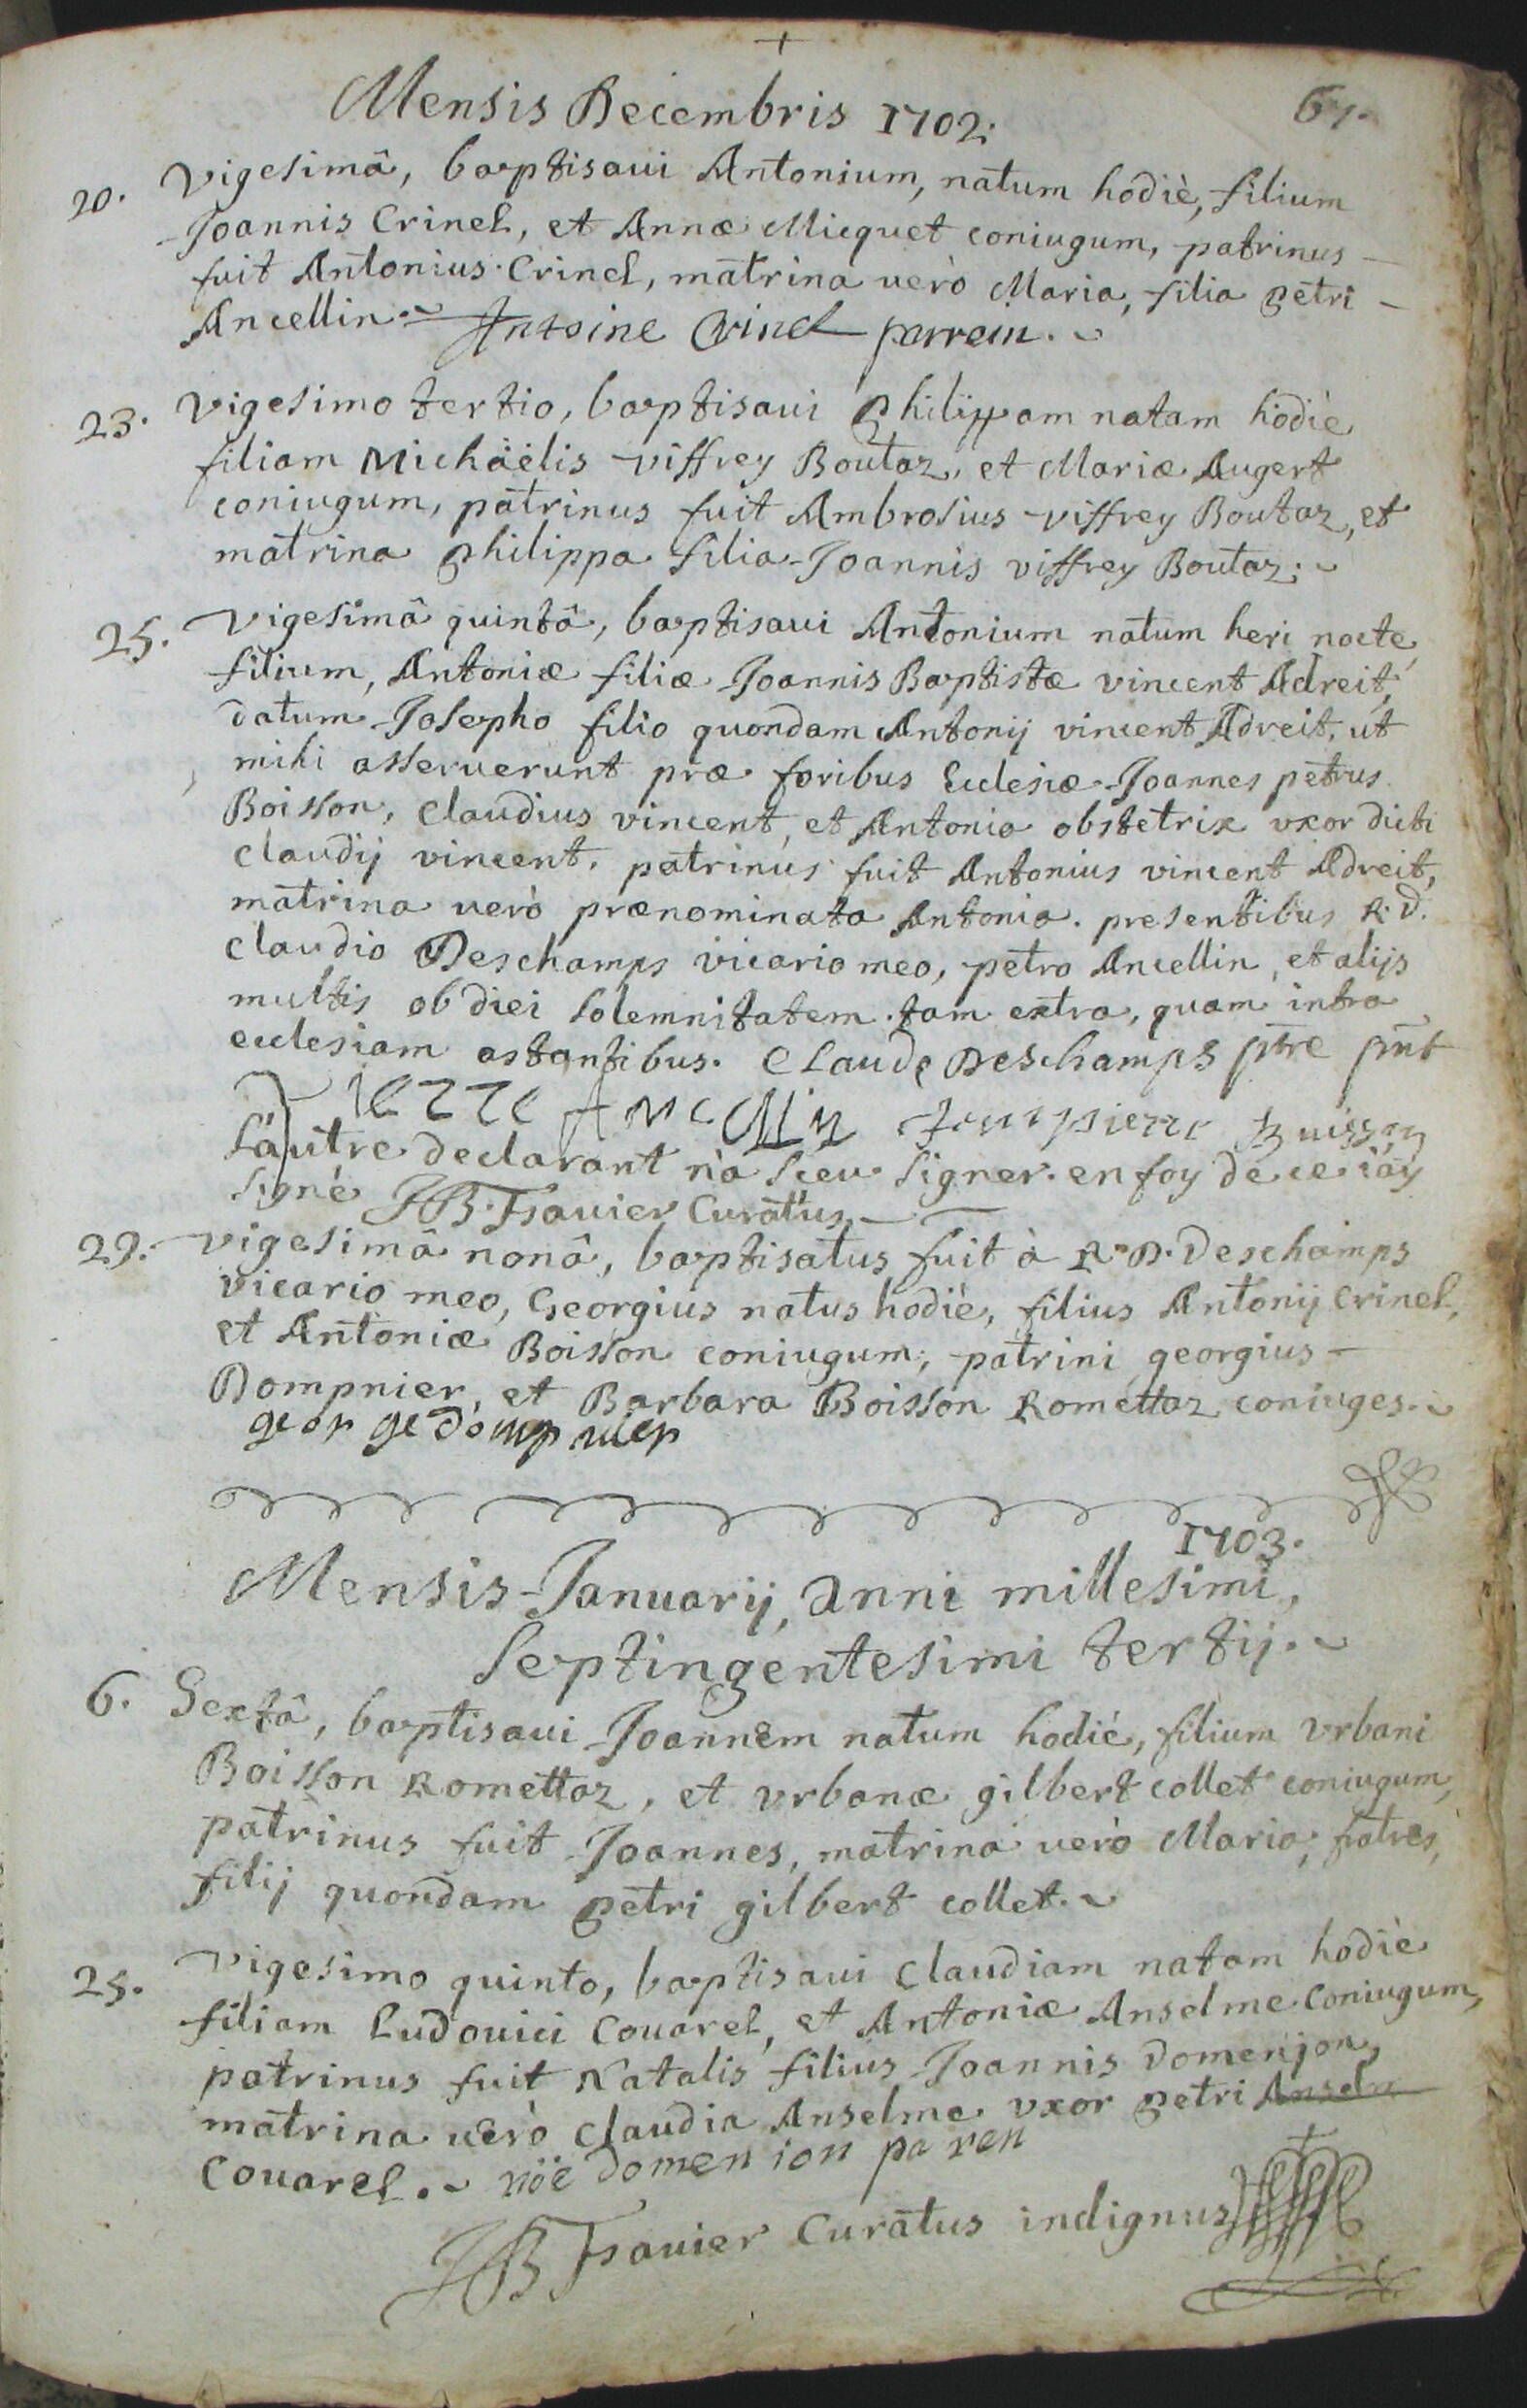 Mensis Decembris 1702.
67.
20. Vigesimâ, baptisaui Antonium, natum hodiè, filium
Joannis Crinel, et Annæ Micquet coniugum, patrinus
fuit Antonius Crinel, matrina uerò Maria, filia petri
Ancellin. Antoine Crinel parrein.
23. Vigesimo tertio, baptisaui Philippam natam hodiè
filiam Michäelis viffrey Boutaz, et Mariæ Augert
coniugum, patrinus fuit Ambrosius viffrey Boutaz, et
matrina philippa filia Joannis viffrey Boutaz.
25. Vigesimâ quintâ, baptisaui Antonium natum heri nocte,
filium, Antoniæ filiæ Joannis Baptistæ vincent Adreit,
datum Josepho filio quondam Antonij vincent Adreit, ut
mihi asseruerunt præ foribus Ecclesiæ Joannes petrus
Boisson, Claudius vincent, et Antonia obstetrix vxor dicti
claudij vincent. patrinus fuit Antonius vincent Adreit,
matrina uerò prænominata Antonia. presentibus R. D.
Claudio Deschamps vicario meo, petro Ancellin, et alijs
multis ob diei solemnitatem tam extra, quam intra
ecclesiam astantibus. Claude Deschamps ptre pnt
Pierre Ancellin Jean pierre Buisson
L'autre declarant n'a sceu signer. en foy de ce i'ay
signé JB. Favier Curatus
29. Vigesimâ nonâ, baptisatus fuit à R. D. Deschamps
vicario meo, Georgius natus hodiè, filius Antonij Crinel,
et Antoniæ Boisson coniugum, patrini georgius
Dompnier, et Barbara Boisson Romettaz coniuges.
george dompnier
1703.
Mensis Januarij, anni millesimi,
septingentesimi tertij.
6. Sextâ, baptisaui Joannem natum hodiè, filium vrbani
Boisson Romettaz, et vrbanæ gilbert collet coniugum,
patrinus fuit Joannes, matrina uerò Maria, fratres,
filij quondam petri gilbert collet.
25. Vigesimo quinto, baptisaui Claudiam natam hodiè
filiam Ludouici Couarel, et Antoniæ Anselme coniugum,
patrinus fuit Natalis filius Joannis Domenjon,
matrina uerò Claudia Anselme vxor petri Anselm
Couarel. nöe domenion paren
JB Favier Curatus indignus